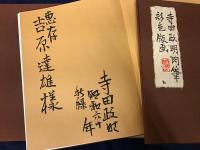 恵存
吉原達雄様
寺田政明
昭和六十年
新緑
寺田政明肉筆
彩色版画